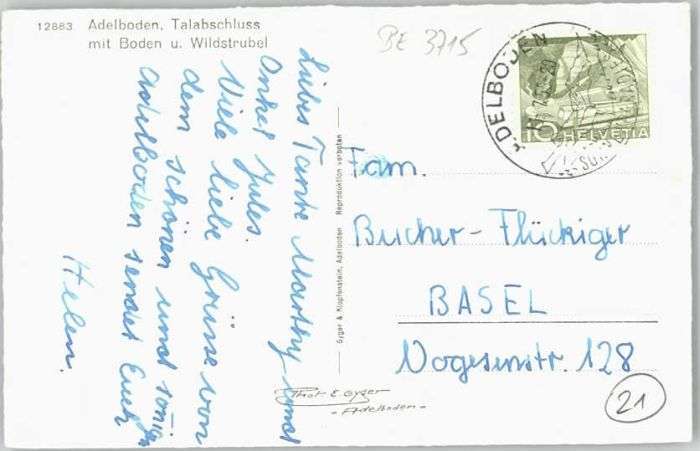 12883 Adelboden, Talabschluss
mit Boden u. Wildstrubel
BE 3715
ADELBODEN
10 HELVETIA
Liebes Tante Marthy und
Onkel Jules.
Viele liebe Grüsse von
dem schönen und sonnigen
Adelboden sendet Euch
Helen.
Gyger & Klopfenstein, Adelboden Reproduktion verboten
Fam.
Bucher-Flückiger
BASEL
Vogesenstr. 128
Phot E. Gyger
- Adelboden -
21